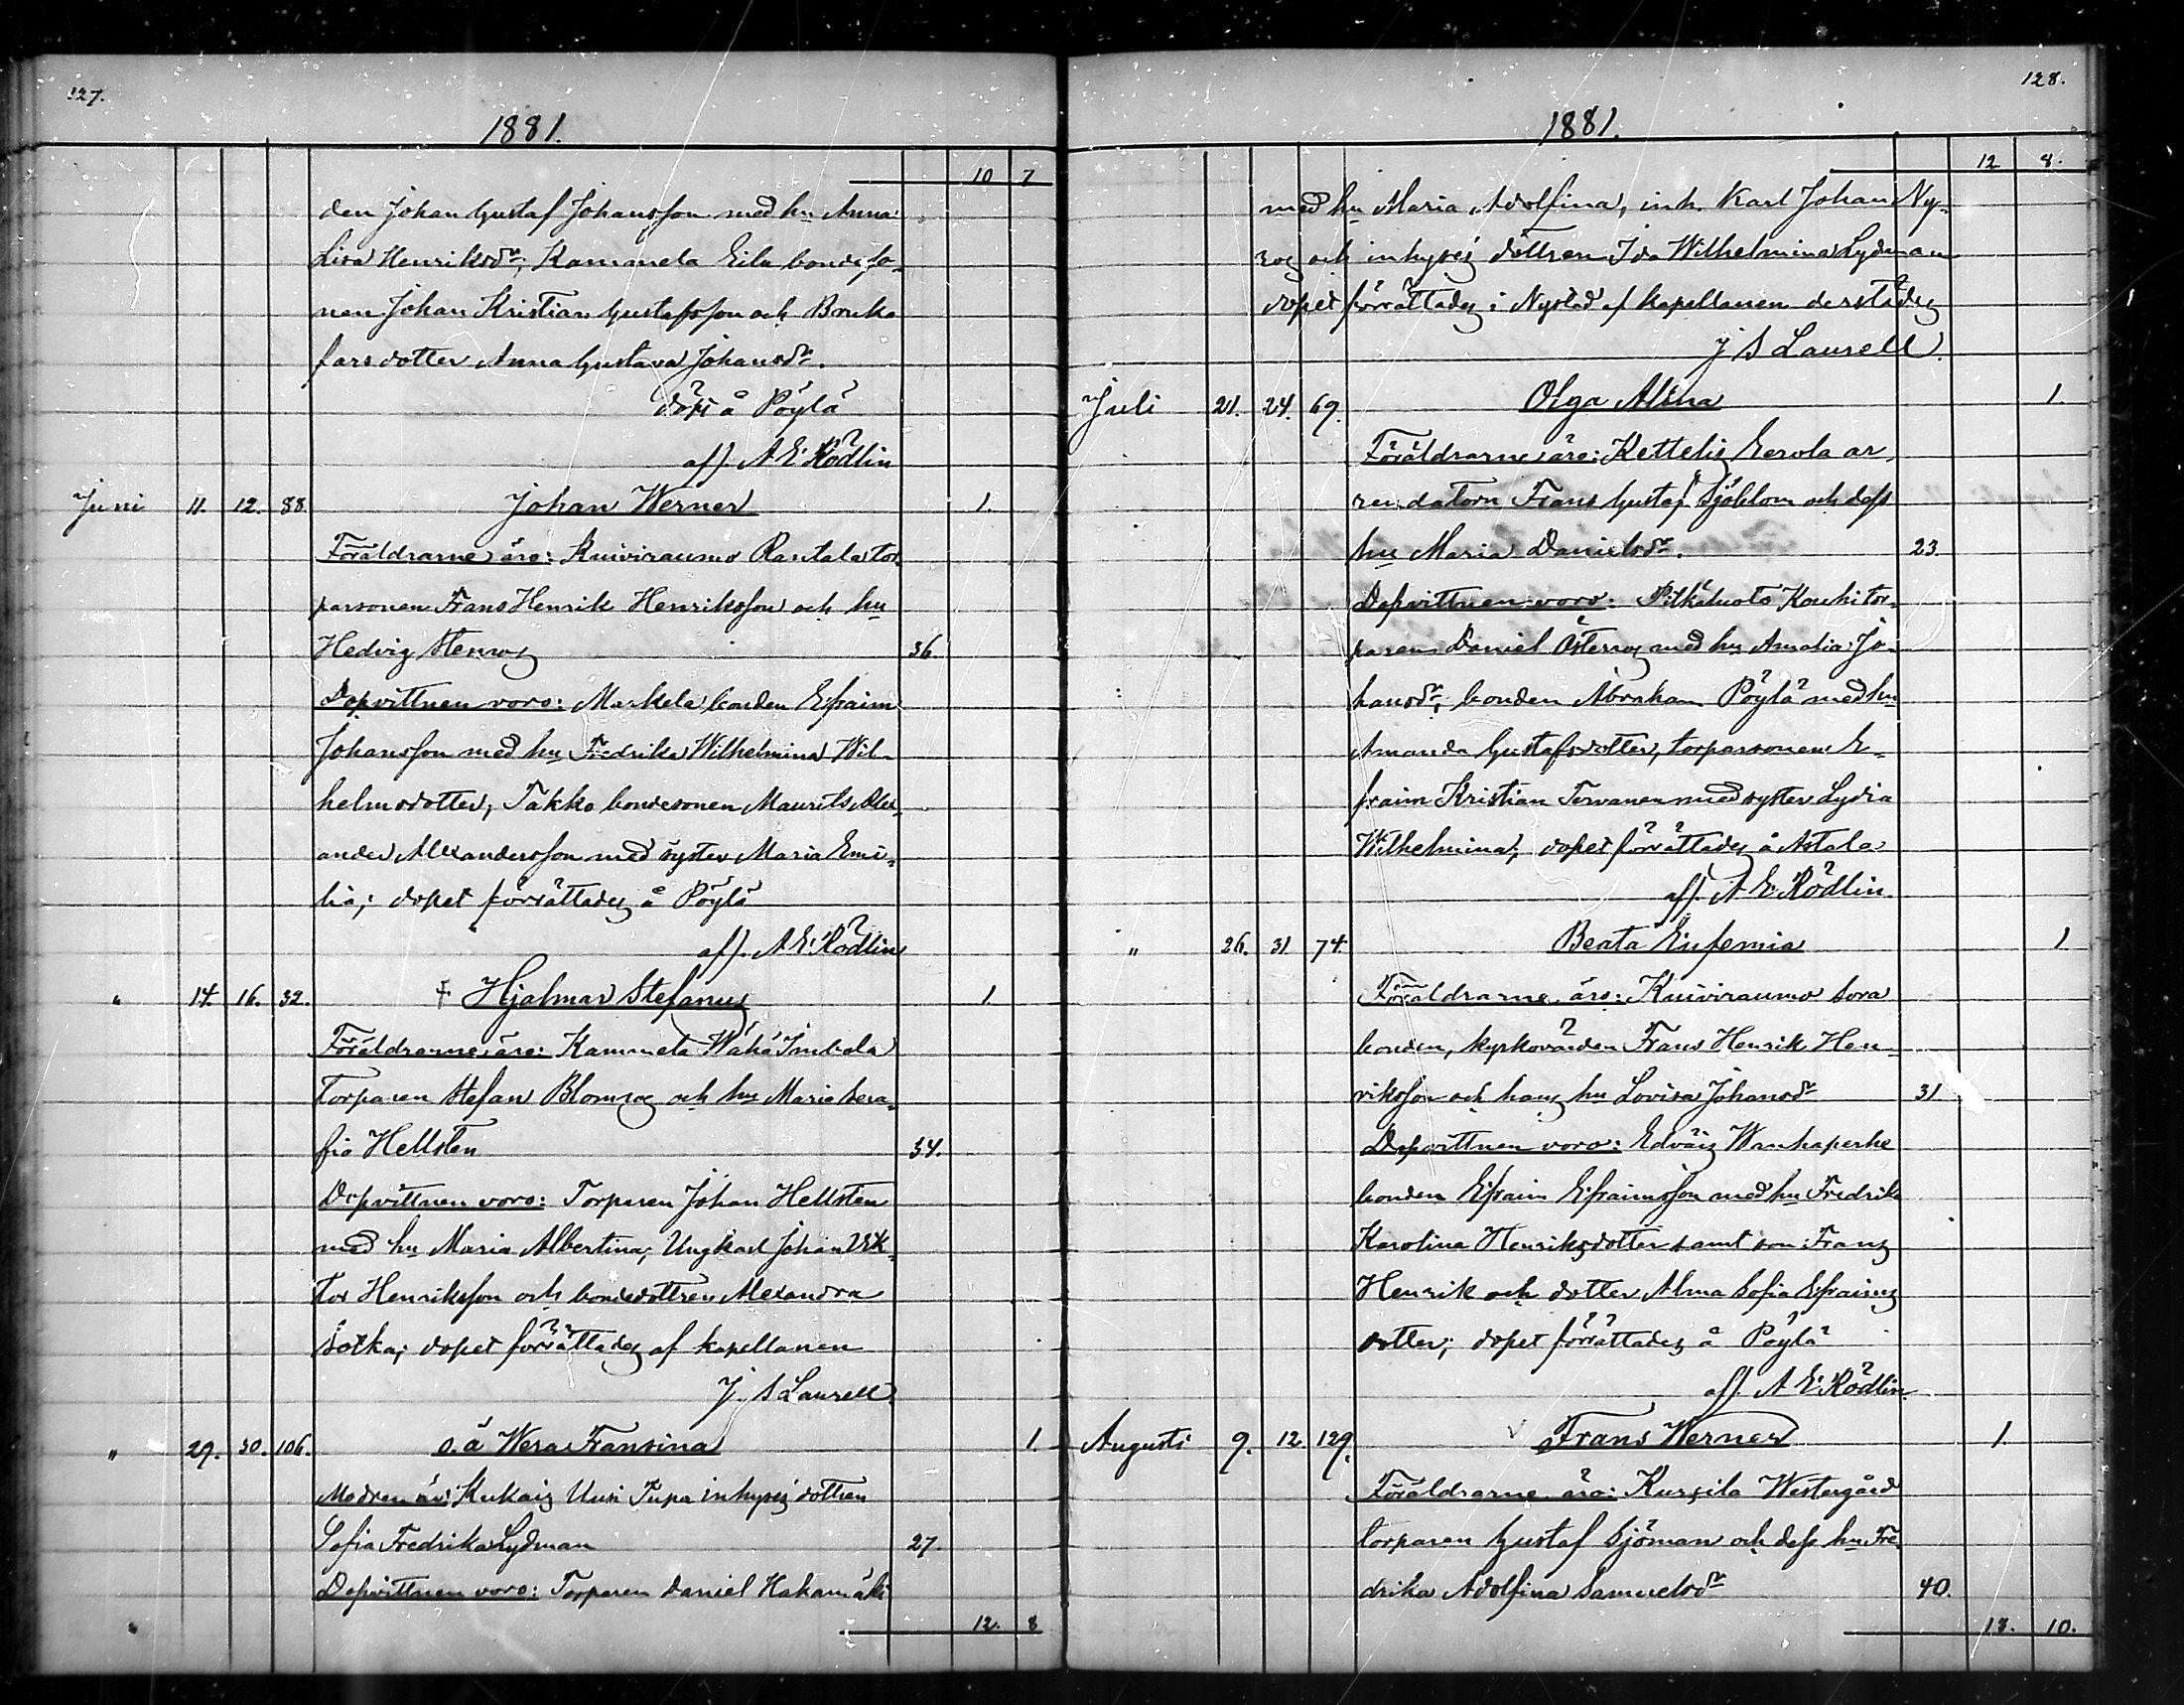 127.
1881.
10 7
den Johan Gustaf Johansson med hu Anna
Lisa Henriksdr, Kammela Eila bondeso-
nen Johan Kristian Gustafsson och Bruka
farsdotter Anna Gustava Johansdr.
döpt å Pöylä
aff. A E Rödlin
Juni 11. 12. 88. Johan Werner 1.
Föräldrarne äro: Kuiviraumo Rantala tor-
parsonen Frans Henrik Henriksson och hu
Hedvig Stenros 36.
Dopvittnen voro: Markela bonden Efraim
Johansson med hu Fredrika Wilhelmina Wil-
helmsdotter, Takko bondesonen Maurits Alex-
ander Alexandersson med syster Maria Emi-
lia; dopet förrättades å Pöylä
aff. A E Rödlin
" 14. 16. 32. Hjalmar Stefanus 1
Föräldrarne äro: Kammela Wähä
Torparen Stefan Blomros och hu Maria Sera-
fia Hellsten 34.
Dopvittnen voro: Torparen Johan Hellsten
med hu Maria Albertina; Ungkarl Johan Vik-
tor Henriksson och bondedottren Alexandra
Sotka; dopet förrättades af kapellanen
J. S Laurell.
" 29. 30. 106. o. ä Wera Fransina 1
Modren är: Kukais Uusi Tupa inhyses dottren
Sofia Fredrika Lydman 27.
Dopvittnen voro: Torparen Daniel Hakamäki
12. 8
128.
1881.
12 8.
med hu Maria Adolfina, inh. Karl Johan Ny-
ros och inhyses dottren Ida Wilhelmina Lydman
dopet förrättades i Nystad af kapellanen derstädes
J S Laurell.
Juli 21. 24. 69. Olga Alina 1.
Föräldrarne äro: Kettelis Eerola ar-
rendatorn Frans Gustaf Sjöblom och dess
hu Maria Danielsdr. 23.
Dopvittnen voro: Pitkäluoto Kouhi tor-
paren Daniel Österros med hu Amalia Jo-
hansdr, bonden Abraham Pöylä med hu
Amanda Gustafsdotter, torparsonen E-
fraim Kristian Tervanen med syster Lydia
Wilhelmina; dopet förrättades å Astala
aff. A E Rödlin.
" 26. 31 74. Beata Eufemia 1
Föräldrarne äro: Kuiviraumo Sora
bonden, kyrkovärden Frans Henrik Hen-
riksson och hans hu Lovisa Johansdr 31
Dopvittnen voro: Edväis Wanhaperhe
bonden Efraim Efraimsson med hu Fredrika
Karolina Henriksdotter samt son Frans
Henrik och dotter Alma Sofia Efraims
dotter; dopet förrättades å Pöylä
aff. A E Rödlin.
Augusti 9. 12. 129. Frans Werner 1.
Föräldrarne äro: Kursila Westergård
torparen Gustaf Sjöman och dess hu Fre-
drika Adolfina Samuelsdr 40.
13. 10.